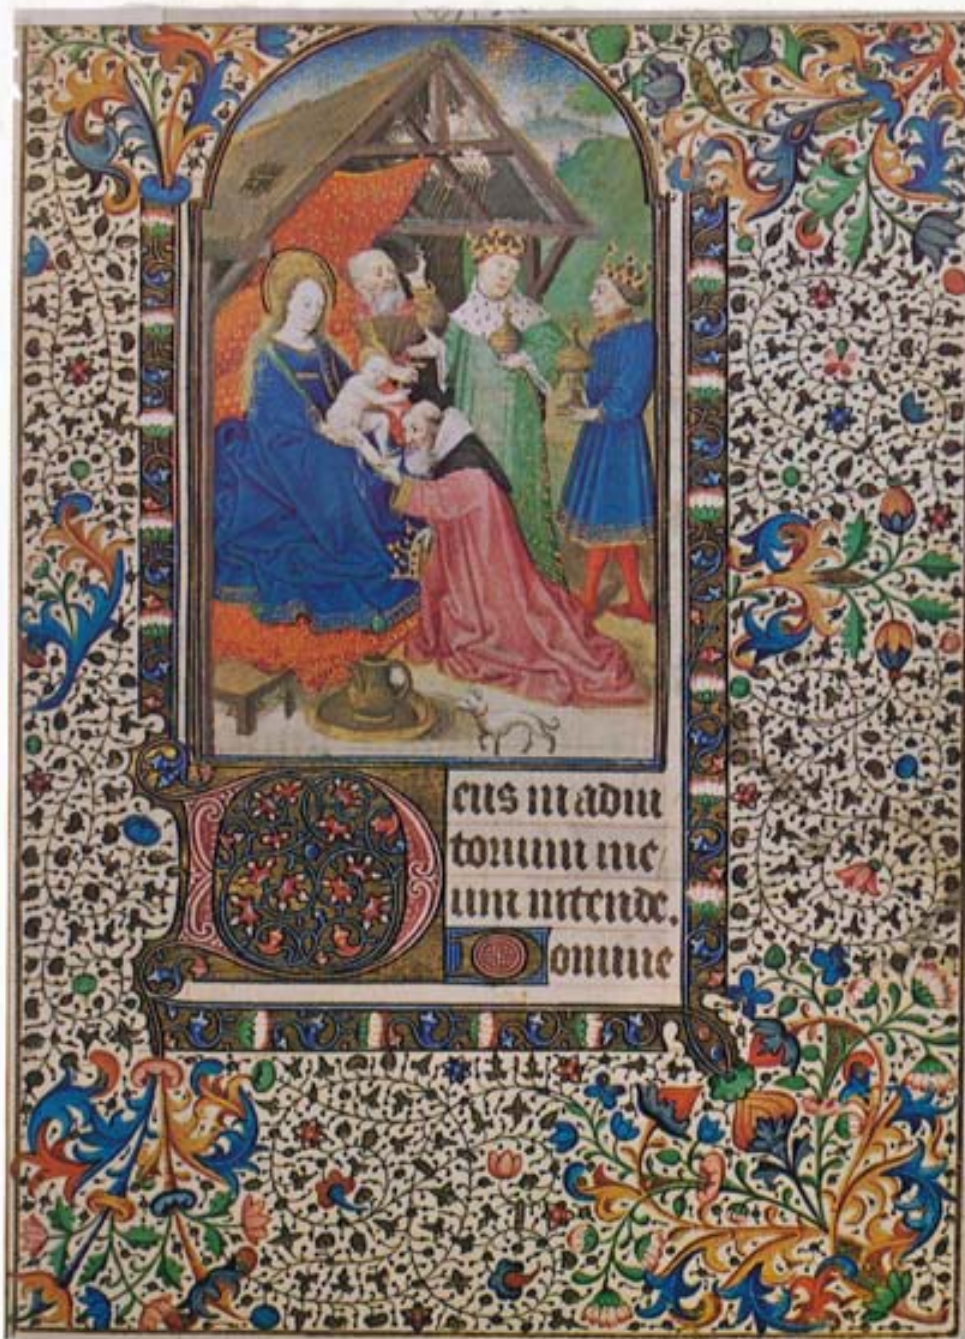 Deus in adiu
torium me
um intende.
Domine